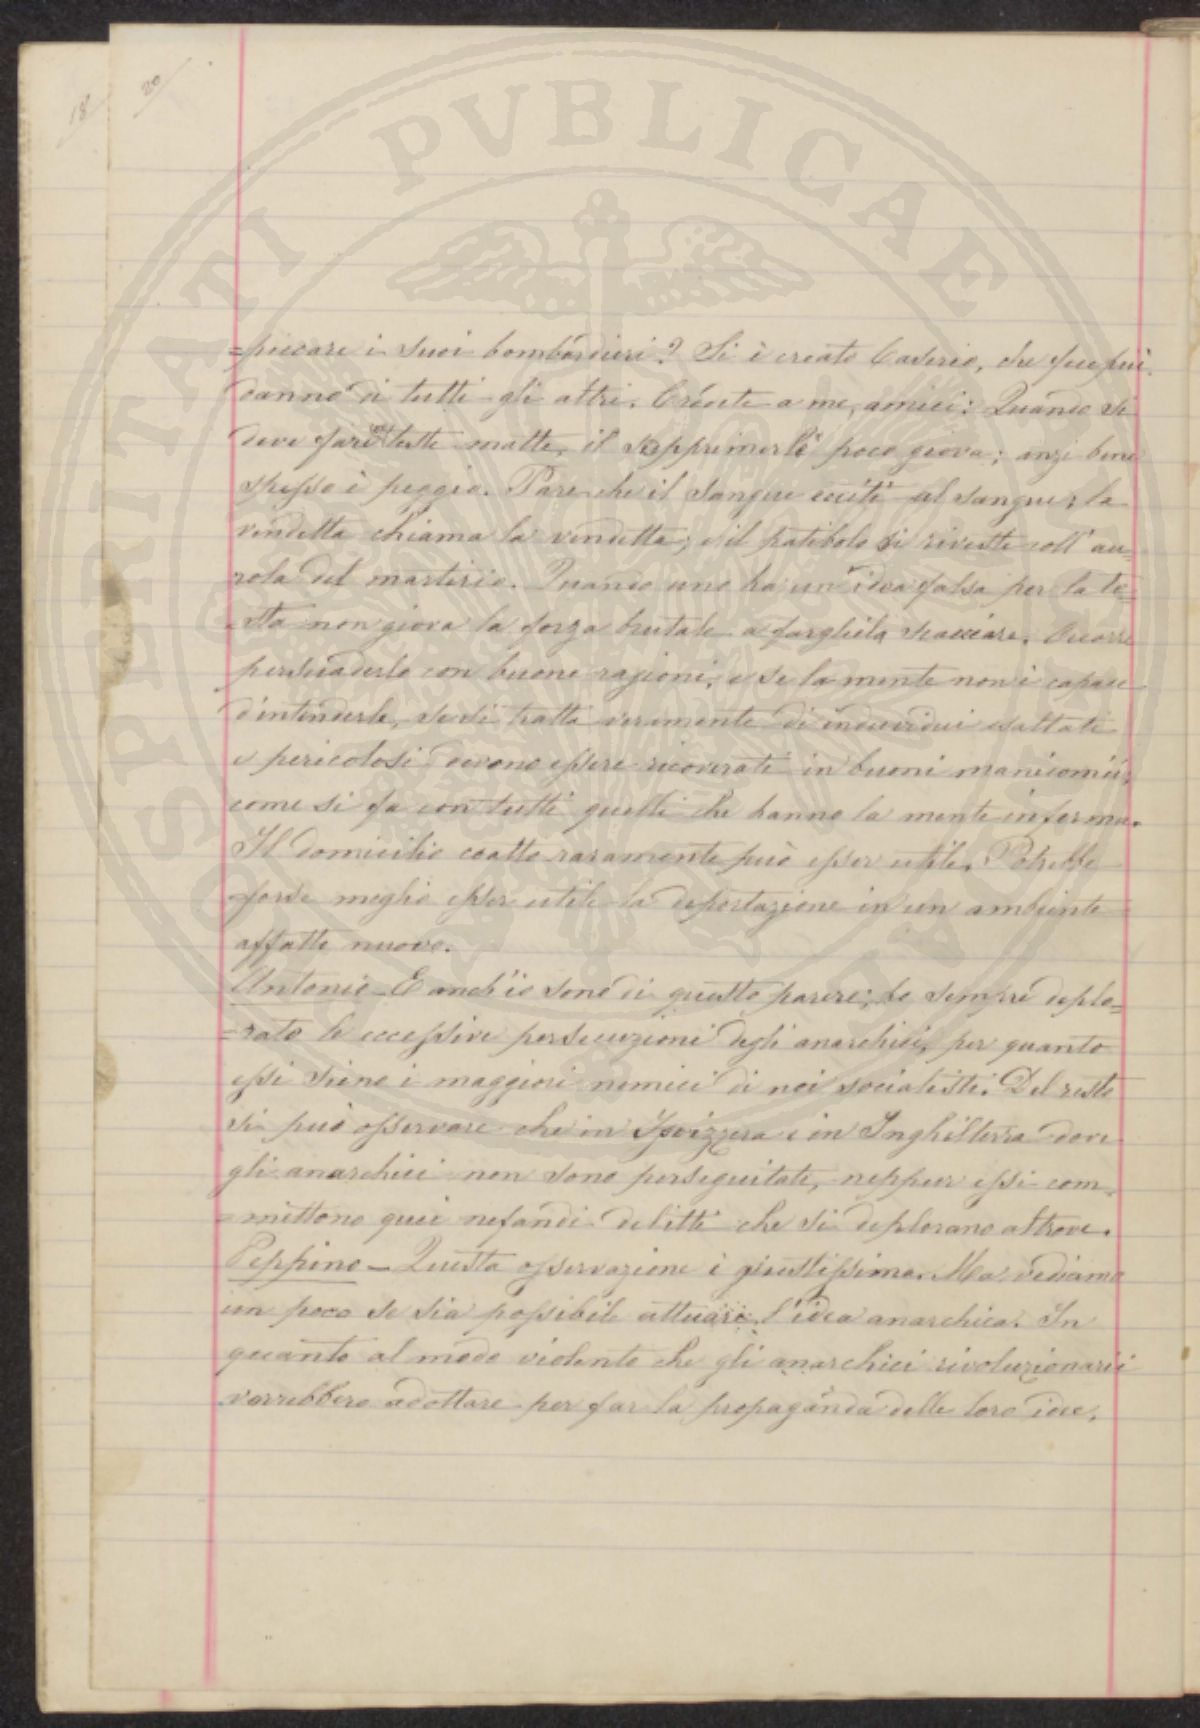 18
20
SPERITATI PVBLICAE
=piccare i suoi bombardieri? Si è creato Caserio, che fece più
danno di tutti gli altri. Credete a me, amici: Quando si
deve fare teste matte, il sopprimerle poco giova; anzi bene
spesso è peggio. Pare che il sangue ecciti al sangue, la
vendetta chiama la vendetta; e il patibolo si riveste coll' au-
rola del martirio. Quando uno ha un' idea falsa per la te=
sta non giova la forza brutale a fargliela scacciare. Occorre
persuaderlo con buone ragioni, e se la mente non è capace
d'intenderle, se si tratta veramente di individui esaltati
e pericolosi devono essere ricoverati in buoni manicomii,
come si fa con tutti quelli che hanno la mente inferma.
Il domicilio coatto raramente può esser utile. Potrebbe
forse meglio esser utile la deportazione in un ambiente
affatto nuovo.
Antonio - E anch'io sono di questo parere; ho sempre deplo=
=rato le eccessive persecuzioni degli anarchici, per quanto
essi siano i maggiori nemici di noi socialisti. Del resto
si può osservare che in Isvizzera e in Inghilterra dove
gli anarchici non sono perseguitati, neppur essi com=
=mettono quei nefandi delitti che si deplorano altrove.
Peppino - Questa osservazione è giustissima. Ma vediamo
un poco se sia possibile attuare l'idea anarchica. In
quanto al modo violento che gli anarchici rivoluzionarii
vorrebbero adottare per far la propaganda delle loro idee,